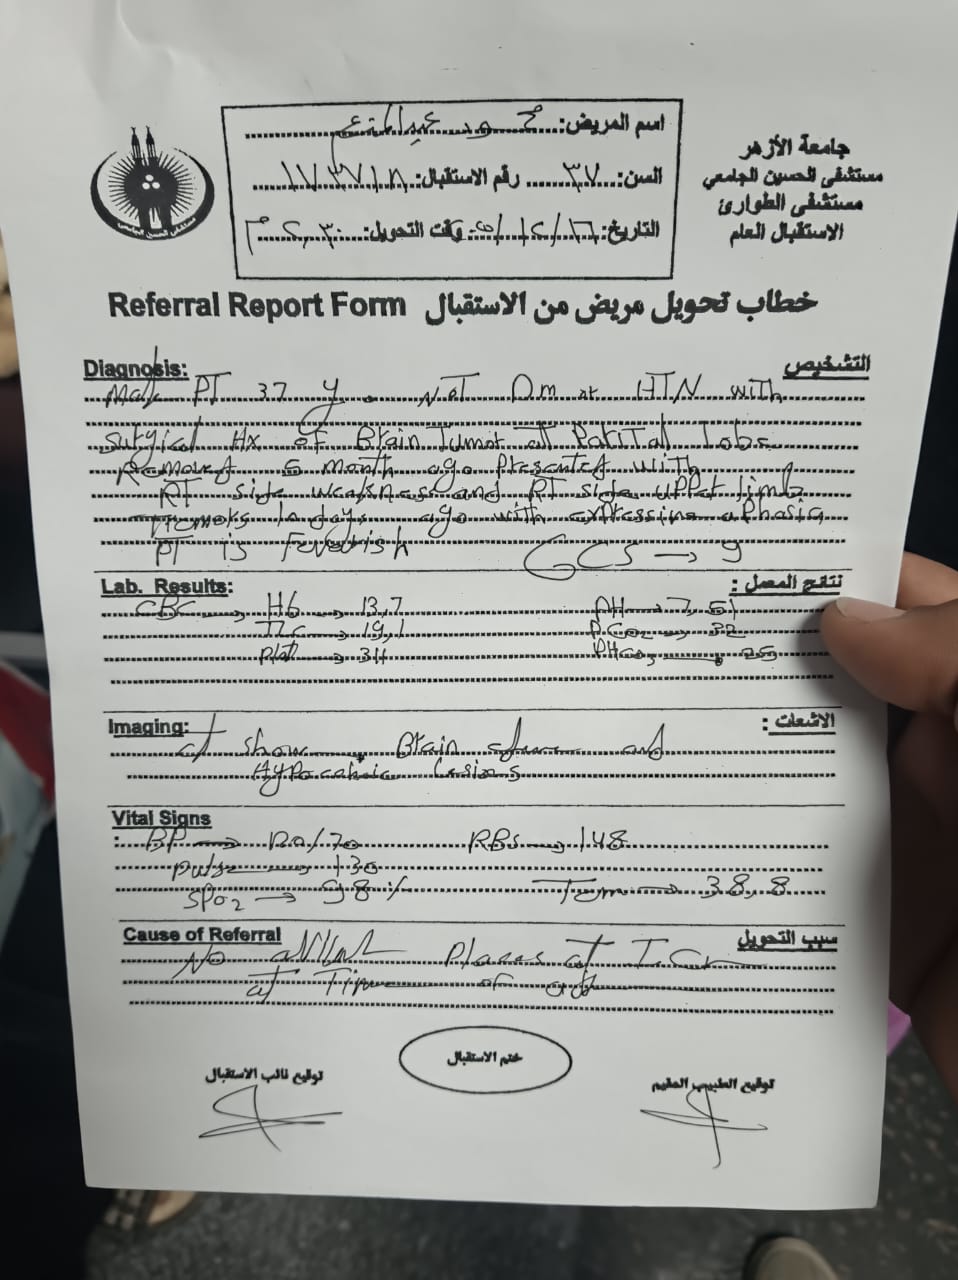 جامعة الأزهر
مستشفى الحسين الجامعي
مستشفى الطوارئ
الاستقبال العام
اسم المريض: محمود عبدالمنعم
السن: ٣٧ رقم الاستقبال: ١٧٣٧١٨
التاريخ: ١٦/١٢/ وقت التحويل: ٢,٣٠ م
مستشفى الحسين الجامعي
Referral Report Form خطاب تحويل مريض من الاستقبال
Diagnosis: التشخيص
Male PT 37 y. Not Dm or HTN with
surgical Hx of Brain Tumor at Parital lobe
Removed 5 month ago Presented with
RT side weakness and RT side upper limb
Tremors days ago with expressine aphasia
PT is Feverish GCS → 9
Lab. Results: نتائج المعمل :
CBC → Hb → 13,7 PH → 7,51
TLC → 19,1 P.CO2 → 32
Plat → 311 → 25
Imaging: الاشعات :
CT show Brain and
lesions
Vital Signs
: BP → 120/70 RBS → 148
pulse → 130
SPO2 → 98 % Tem → 38,8
Cause of Referral سبب التحويل
No Places at I.Cu
at Time of
ختم الاستقبال
توقيع نائب الاستقبال توقيع الطبيب المقيم